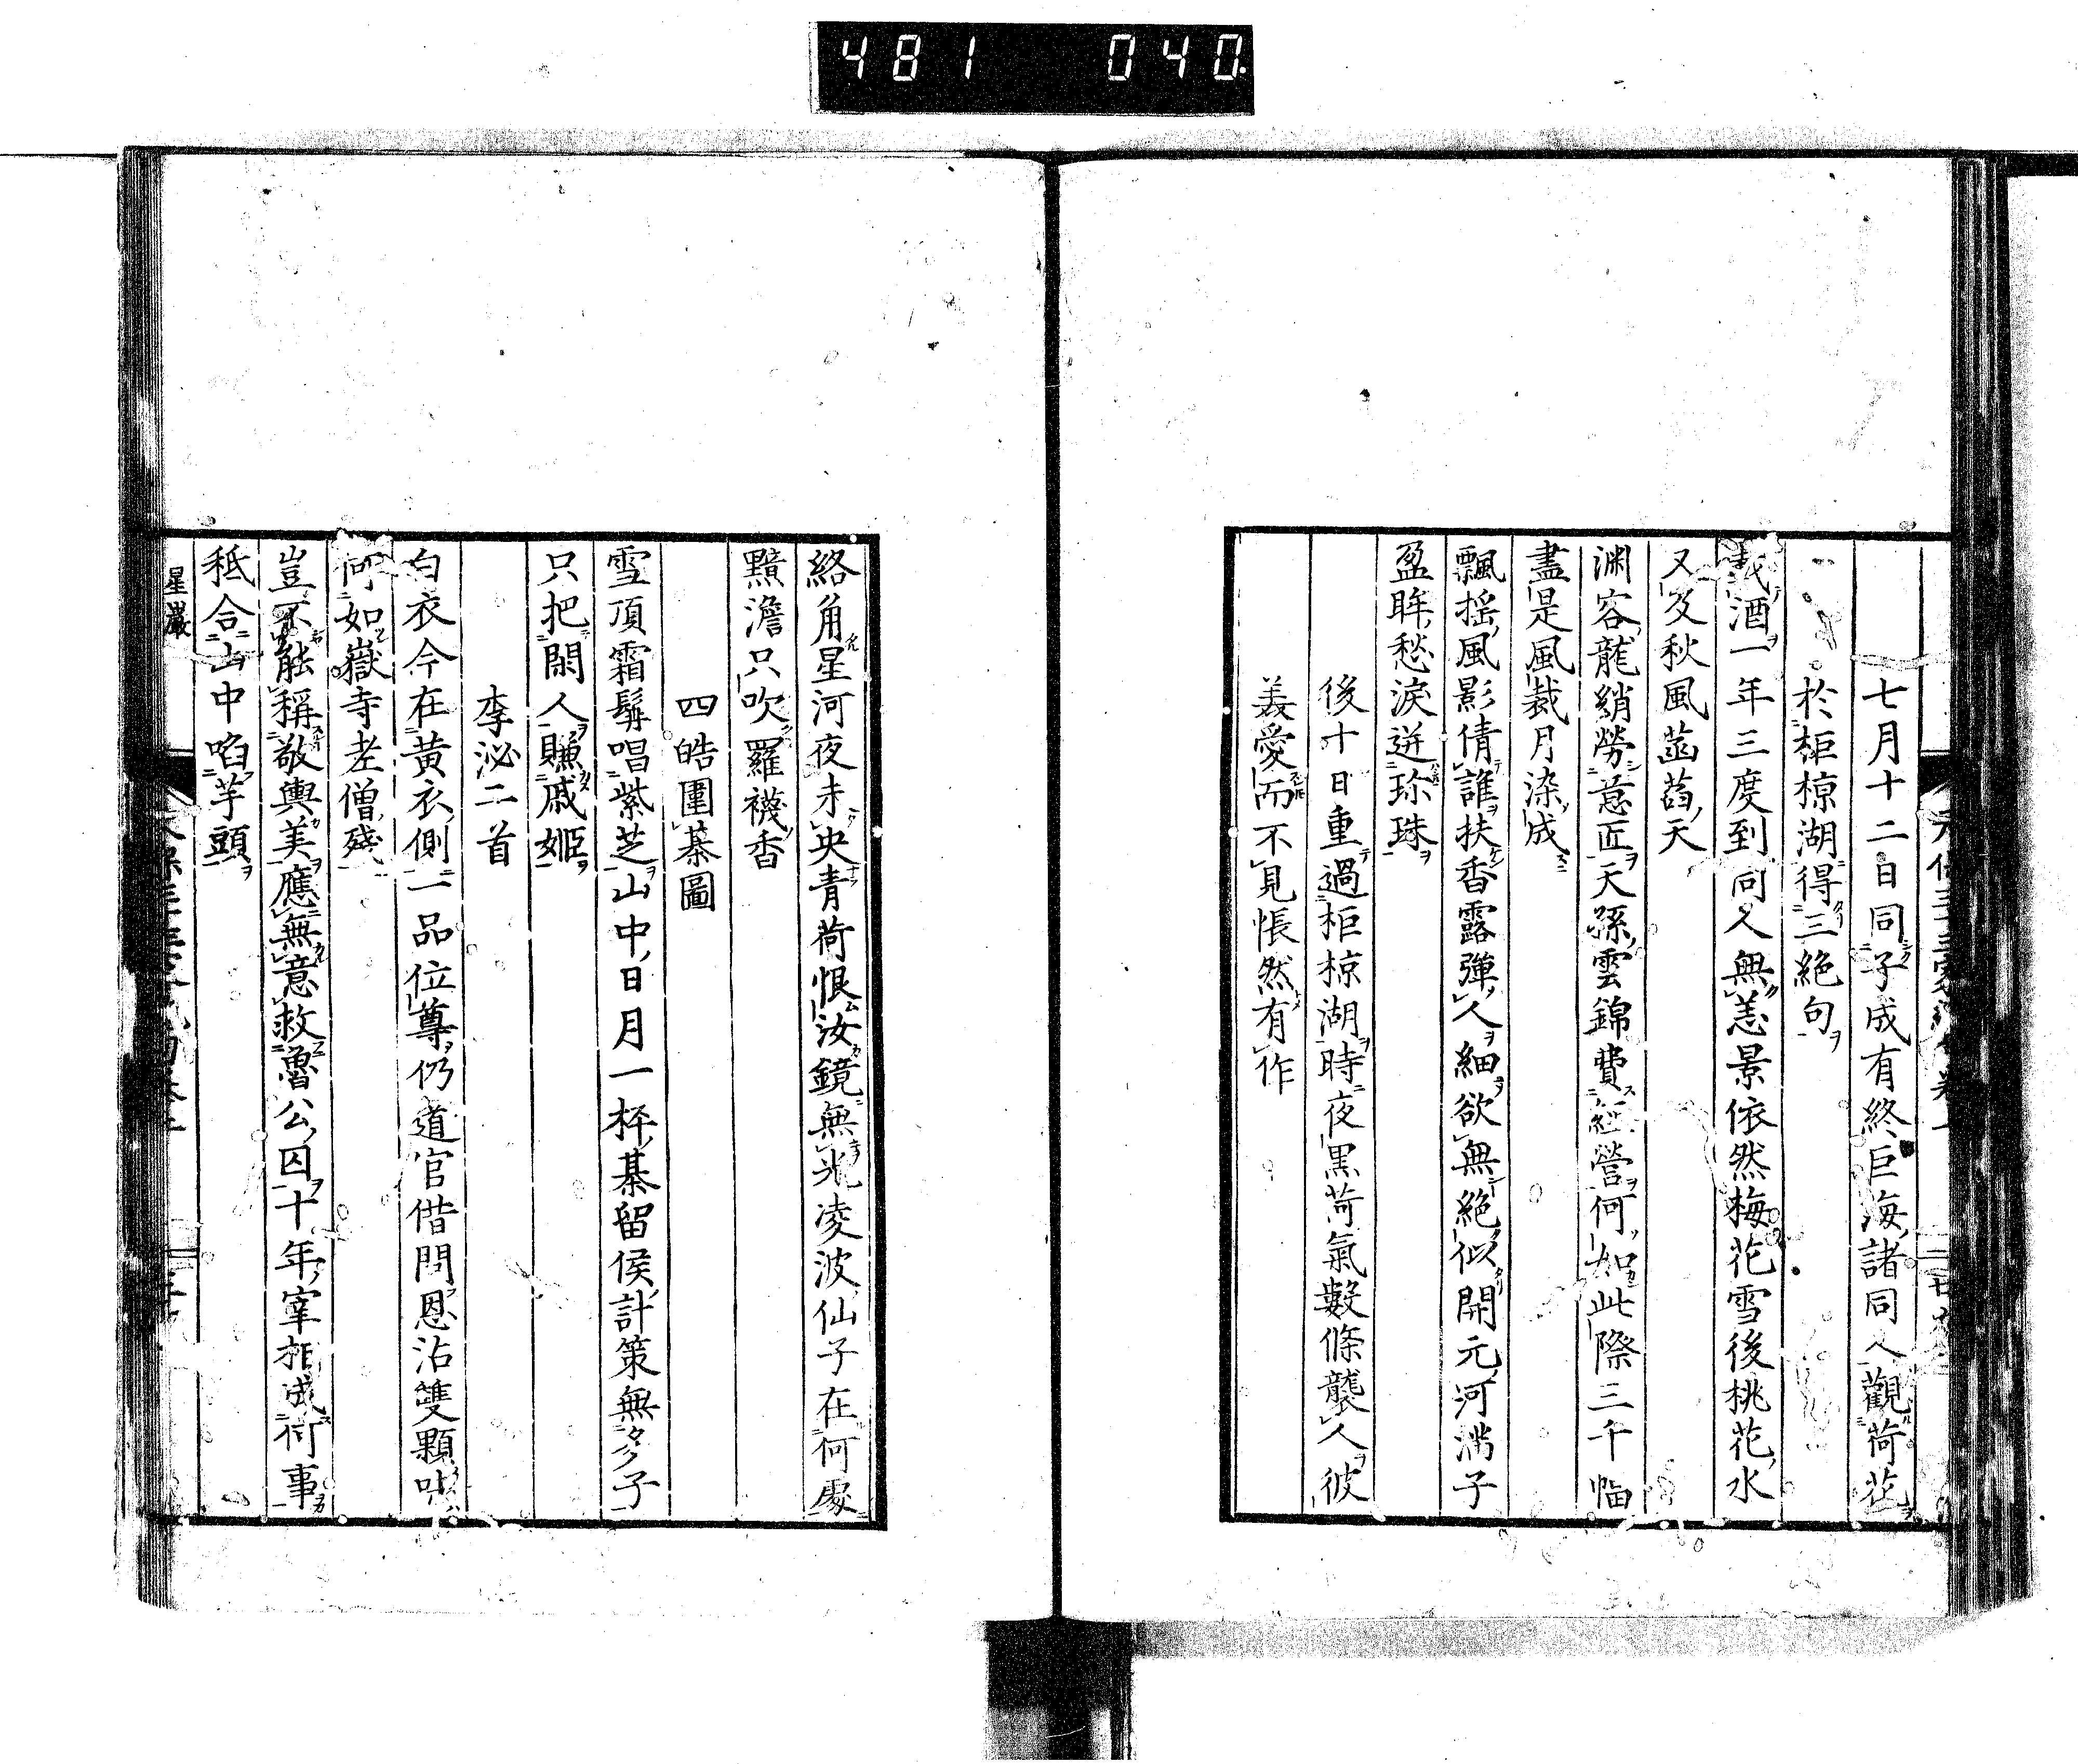 481 040
七月十二日同子成有終巨海諸同人觀荷花
於柜椋湖得三絶句
載酒一年三度到同人無恙景依然梅花雪後桃花水
又及秋風菡萏天
淵客龍綃勞意匠天孫雲錦費經營何如此際三千幅
盡是風裁月染成
飄揺風影倩誰扶香露彈人細欲無絶似開元河満子
盈眸愁淚迸珍珠
後十日重過柜椋湖時夜黒荷氣數條襲人彼
美愛而不見悵然有作
絡角星河夜未央青荷恨汝鏡無光凌波仙子在何處
黯澹只吹羅襪香
四皓圍棊圖
雪頂霜鬅唱紫芝山中日月一枰棊留侯計策無多子
只把閑人賺戚姬
李泌二首
白衣今在黄衣側一品位尊仍道官借問恩沾雙顆
何如嶽寺老僧殘
豈不能稱敬輿美應無意救魯公囚十年宰相成何事
秪合山中啗芋頭
星巖